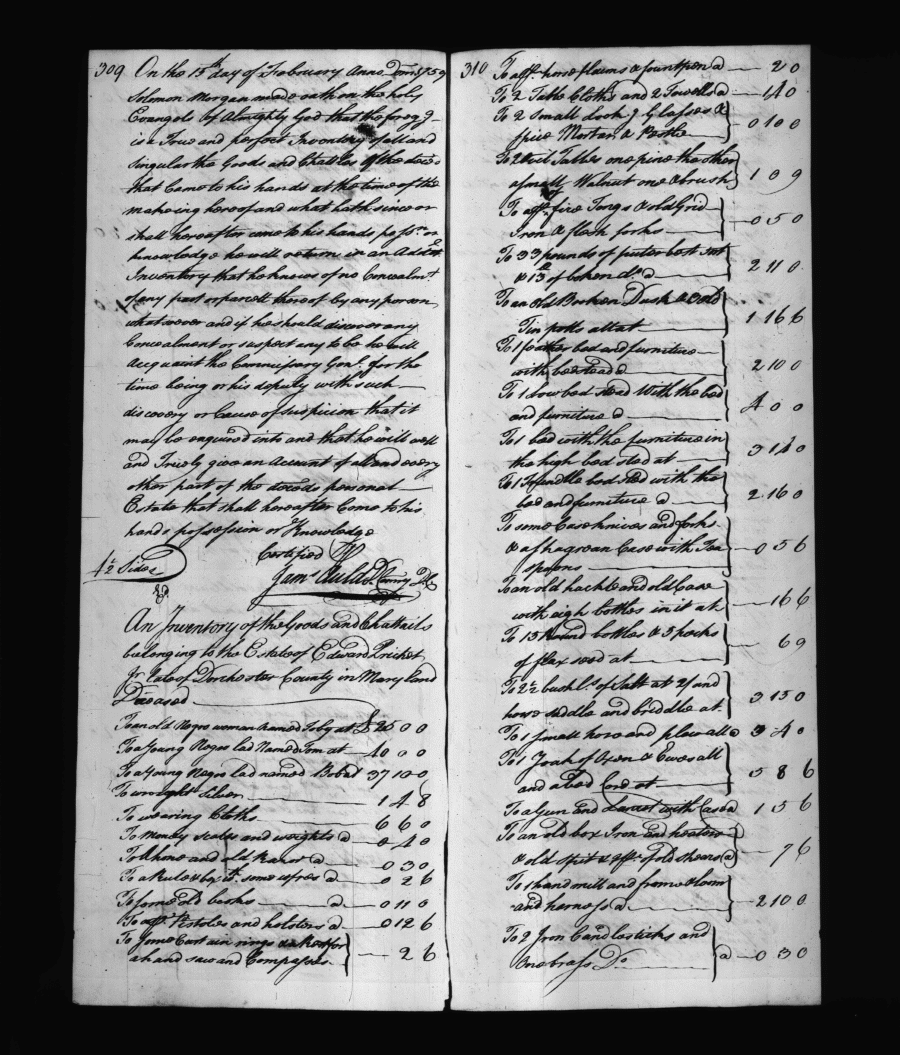 309 On the 15th day of February Anno Dom 1759
Solomon Morgan made oath on the holy
Evangels of Almighty God that the foreg.g
is a True and perfect Inventory of all and
singular the Goods and Chattles of the deced
that Came to his hands at the time of the
makeing hereof and what hath since or
shall hereafter come to his hands possn or
knowledge he will return in an Additl
Inventory that he knows of no Concealmt
of any part or parcell thereof by any person
whatsoever and if he should discover any
Concealment or suspect any to be he will
acquaint the Commissary Genl for the
time being or his deputy with such
discovery or Cause of suspicion that it
may be enquired into and that he will well
and Truely give an Account of all and every
other part of the deceds personal
Estate that shall hereafter Come to his
hands possession or Knowledge
Certified
4½ Sides
Jams Auld D Comry
An Inventory of the Goods and Chattels
belonging to the Estate of Edward Pricket
Jr Late of Dorchester County in Maryland
Deceased
To an old Negro woman named Toby at £ 25 0 0
To a Young Negro lad Named Tom at 40 0 0
To a Young Negro lad named Bob at 37 10 0
To wrought Silver 1 4 8
To wearing Cloths 6 6 0
To Money Scales and weights a 0 4 0
To 1 hone and old Razor a 0 3 0
To a Rule & 0 2 6
To some old books a 0 11 0
To a pr Pistoles and holsters a 0 12 6
To some Curtain rings
a hand saw and Compasses 2 6
310 To a pr horse flams & fountpen a 2 0
To 2 Table Cloths and 2 Towells a 14 0
To 2 Small Look.g Glasses &
spice Mortar & Pestle 0 10 0
To 2 Tables one pine the other
a small Walnut one & brush 1 0 9
To a pr fire Tongs & old Grid
Iron & flesh forks 0 5 0
To 33 pounds of puter best sort
& 13 lb of broken do a 2 11 0
To an old Broken Dask & 3 old
Tin potts all at 1 16 6
To 1 feather bed and furniture
with bedstead a 2 10 0
To 1 low bed sted With the bed
and furniture a 4 0 0
To 1 bed with the furniture in
the high bed sted at 3 14 0
To 1 Trundle bed sted with the
bed and furniture a 2 16 0
To some Case knives and forks
& a shagrean Case with Tea
spoons 0 5 6
To an old hackle and old Case
with eigh bottles in it at 16 6
To 15 Round bottles & 3 pecks
of flax seed at 6 9
To 2½ bushls of Salt at 2/ and
horse saddle and briddle at 3 15 0
To 1 small hors and plow all a 3 4 0
To 1 Yoak of Oxen & Ewes all
and a bed Cord at 5 8 6
To a Gun and with Case a 1 5 6
To an old box Iron and heaters
& old spit & a pr of old shears a 7 6
To 1 hand mill and frame & loom
and harness a 2 10 0
To 2 Iron Candlesticks and
One brass Do a 0 3 0